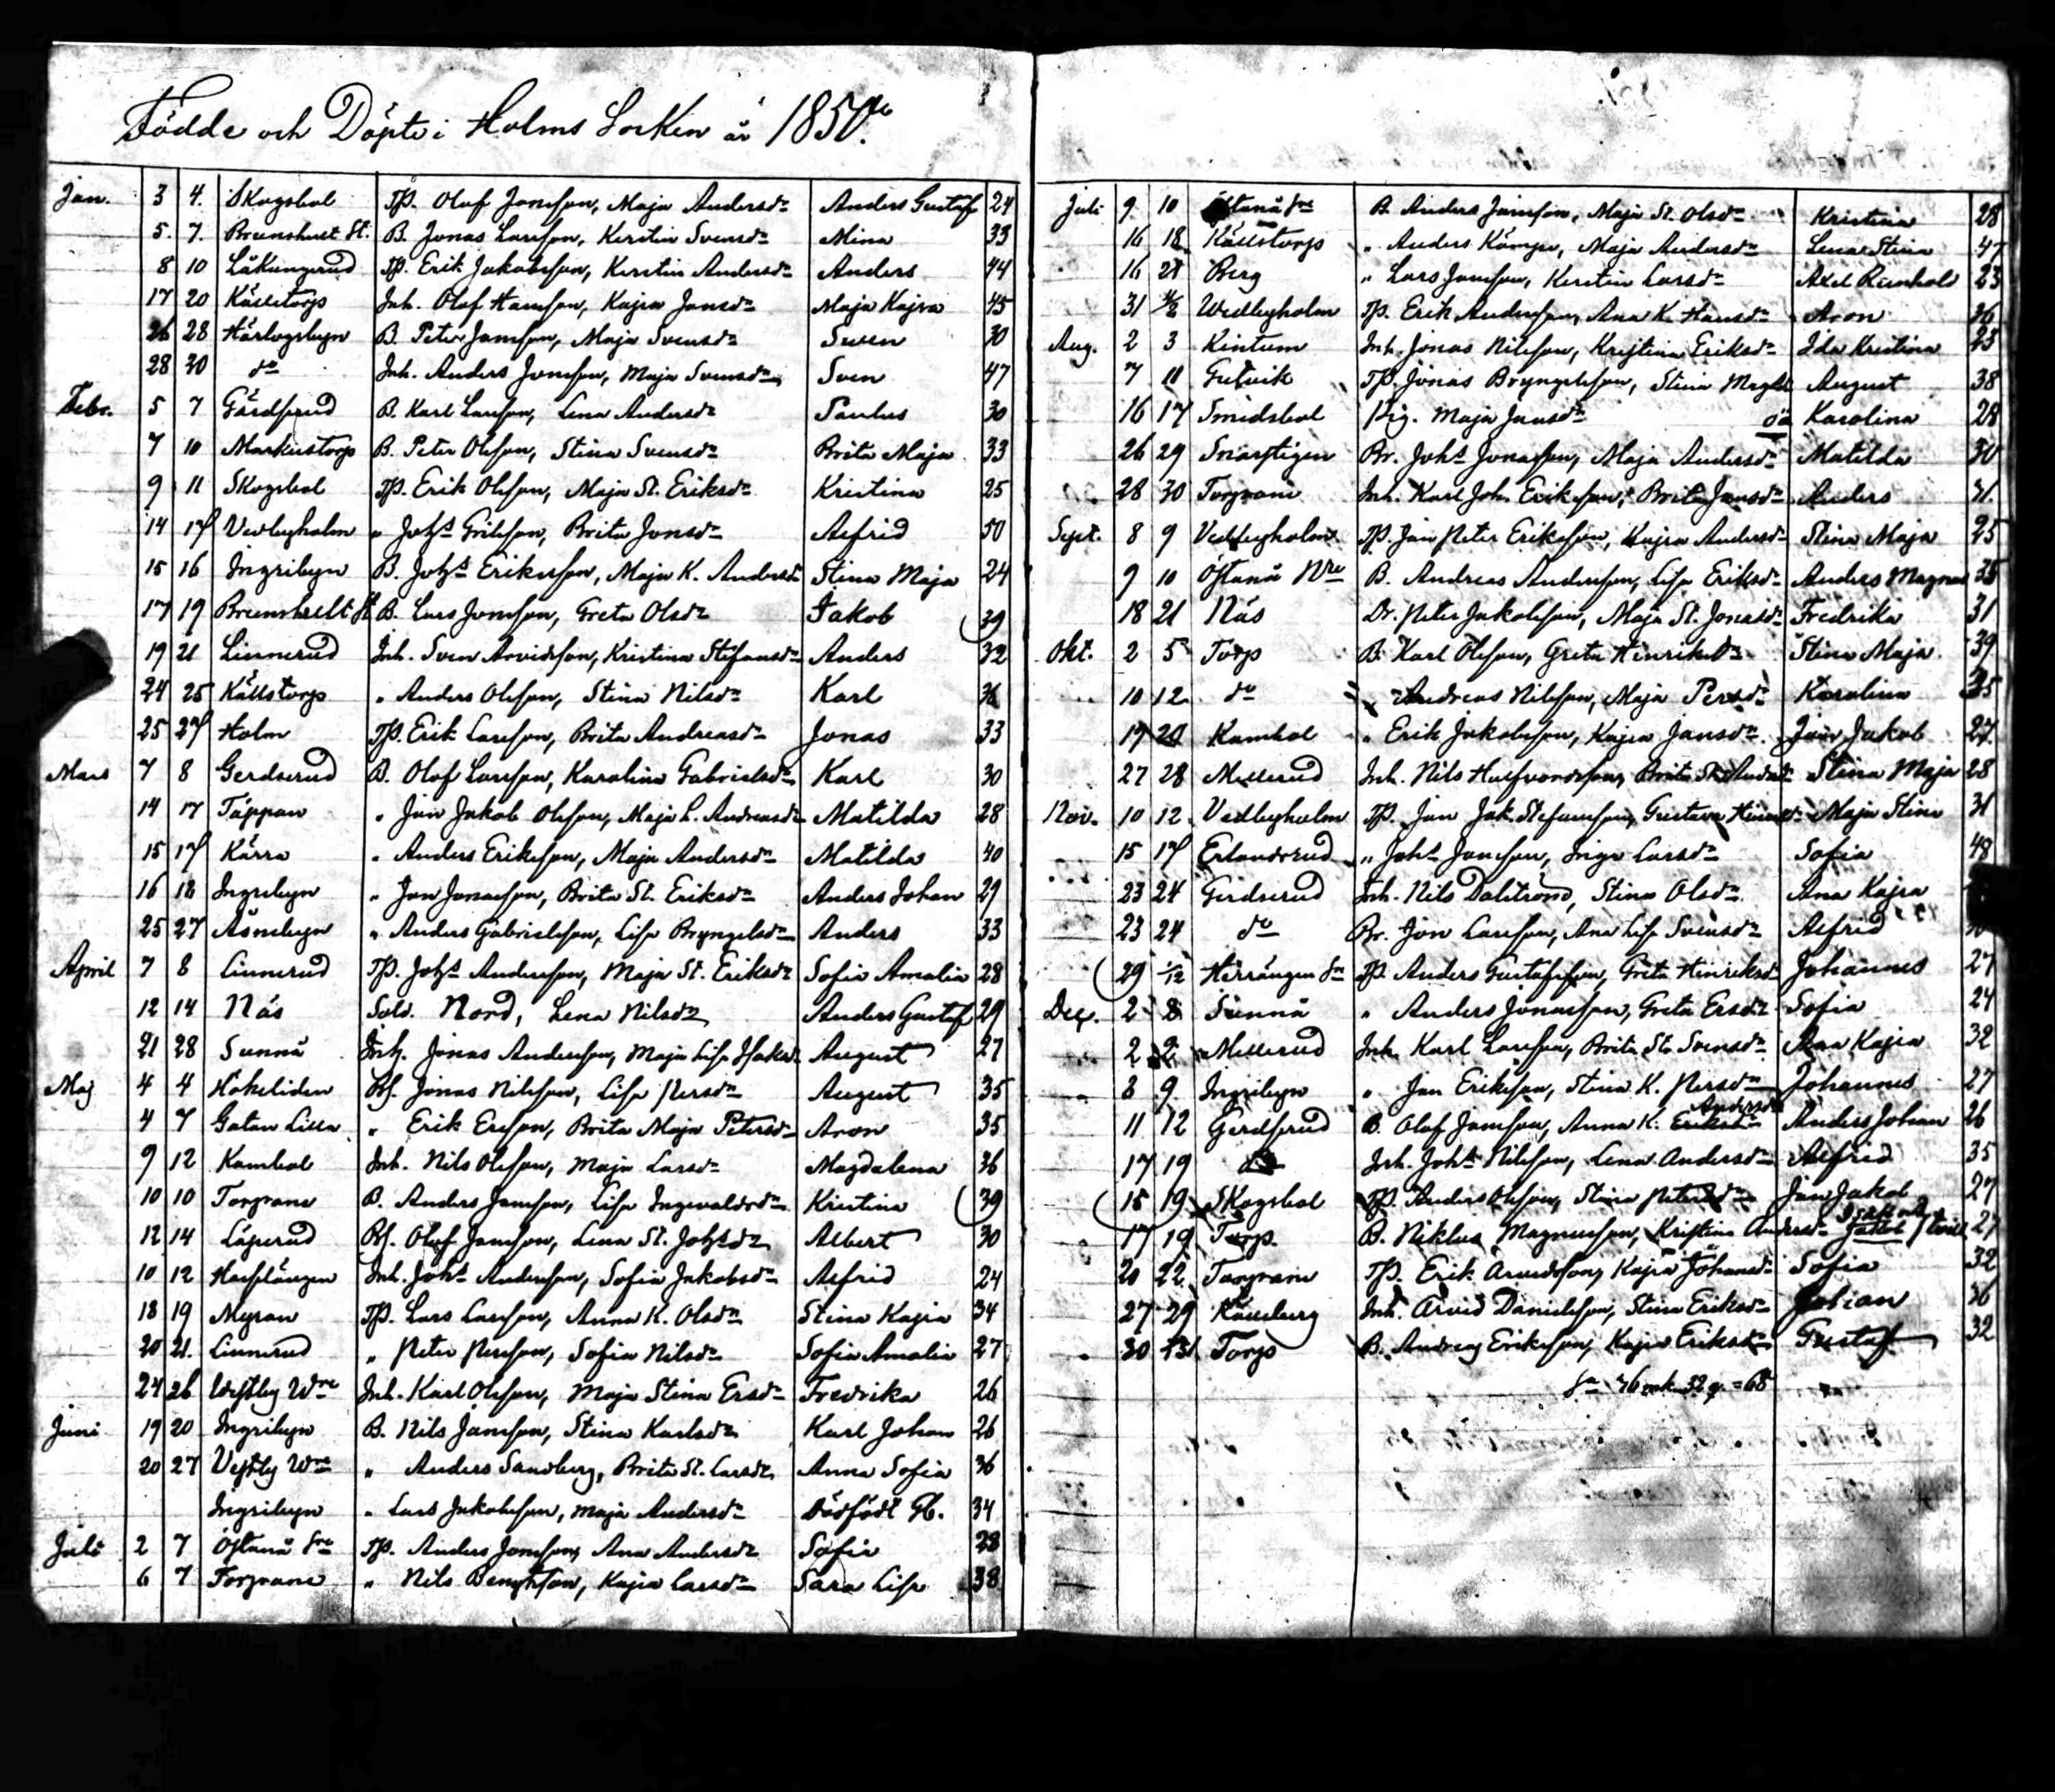 Födde och Döpte i Holms Socken år 1850.
Jan. 3 4. Skogsbol Tp. Olof Jonsson, Maja Andersdr Anders Gustaf 24
5. 7. B. Jonas Larsson, Kerstin Svensdr Mina 33
8 10 Tp. Erik Jakobsson, Kerstin Andersdr Anders 44
17 20 Källstorp Inh. Olof Hansson, Kajsa Jonsdr Maja Kajsa 45
26 28 B. Peter Jansson, Maja Svensdr Sven 30
28 30 do Inh. Anders Jonsson, Maja Svensdr Sven 47
Febr. 5 7 Gärdsrud B. Karl Larsson, Lena Andersdr Paulus 30
7 10 Markustorp B. Peter Olsson, Stina Svensdr Brita Maja 33
9 11 Skogsbol Tp. Erik Olsson, Maja St. Eriksdr Kristina 25
14 17 Vedbyholm " Johs Brita Jonsdr Alfrid 50
15 16 Ingribyn B. Johs Eriksson, Maja K. Andersdr Stina Maja 24
17 19 B. Lars Jonsson, Greta Olsdr Jakob 39
19 21 Linnerud Inh. Sven Arvidsson, Kristina Stefansdr Anders 32
24 25 Källstorp " Anders Olsson, Stina Nilsdr Karl
25 27 Holm Tp. Erik Larsson, Brita Andreasdr Jonas 33
Mars 7 8 Gerdserud B. Olof Larsson, Karolina Gabrielsdr Karl 30
14 17 Täppan " Jan Jakob Olsson, Maja L. Andreasdr Matilda 28
15 17 Kärra " Anders Eriksson, Maja Andersdr Matilda 40
16 18 Ingribyn " Jon Jonasson, Brita St. Eriksdr Anders Johan 29
25 27 Åsnebyn " Anders Gabrielsson, Lisa Bryngelsdr Anders 33
April 7 8 Linnerud Tp. Johs Andersson, Maja St. Eriksdr Sofia Amalia 28
12 14 Näs Sold. Nord, Lena Nilsdr Anders Gustaf 29
21 28 Sunnå Inh. Jonas Andersson, Maja Lisa Isaksdr August 27
Maj 4 4 Hökeliden Jonas Nilsson, Lisa Persdr August 35
4 7 Gatan Lilla " Erik Ersson, Brita Maja Petersdr Aron 35
9 12 Kambol Inh. Nils Olsson, Maja Larsdr Magdalena 36
10 10 Torgrane B. Anders Jansson, Lisa Ingevaldsdr Kristina 39
12 14 Olof Jansson, Lena St. Johsdr Albert 30
10 12 Inh. Johs Andersson, Sofia Jakobsdr Alfrid 24
18 19 Myran Tp. Lars Larsson, Anna K. Olsdr Stina Kajsa 34
20 21. Linnerud " Peter Persson, Sofia Nilsdr Sofia Amalia 27
24 26 Westby Wre Inh. Karl Olsson, Maja Stina Ersdr Fredrika 26
Juni 19 20 Ingribyn B. Nils Jansson, Stina Karlsdr Karl Johan 26
20 27 Vestby Wre " Anders Sandberg, Brita St. Larsdr Anna Sofia 36
Ingribyn " Lars Jakobsson, Maja Andersdr Dödfödt 34
Juli 2 7 Östanå Sre Tp. Anders Jonsson, Ana Andersdr Sofia 28
6 7 Torgrane " Nils Bengtsson, Kajsa Larsdr Sara Lisa 38
Juli 9 10 Östanå Sre B. Anders Jansson, Maja St. Olsdr Kristina 28
16 18 Källstorp " Anders Kämpe, Maja Andersdr Lena Stina 47
16 21 Berg " Lars Jansson, Kerstin Larsdr Axel Reinhold 23
31 Wedbyholm Tp. Erik Andersson, Ana K. Hansdr Aron 36
Aug. 2 3 Kintum Inh. Jonas Nilsson, Kristina Eriksdr Ida Kristina
7 11 Gutvik Tp. Jonas Bryngelsson, Stina August 38
16 17 Smidsbol Pig. Maja Jansdr oä Karolina 28
26 29 Snarstigen Br. Johs Jonasson, Maja Andersdr Matilda 30
28 30 Torgrane Inh. Karl Joh. Eriksson, Brita Jansdr Anders
Sept. 8 9 Vedbyholm Tp. Jan Peter Eriksson, Kajsa Andersdr Stina Maja 25
9 10 Östanå Nre B. Andreas Andersson, Lisa Eriksdr Anders Magnus 35
18 21 Näs Dr. Peter Jakobsson, Maja St. Jonasdr Fredrika 31
Okt. 2 5 Torp B. Karl Olsson, Greta Henriksdr Stina Maja 39
10 12 do " Andreas Nilsson, Maja Persdr Karolina 35
19 20 Kambol " Erik Jakobsson, Kajsa Jansdr Jan Jakob 27
27 28 Mellerud Inh. Nils Halfvordsson, Brita St. Andersdr Stina Maja 28
Nov. 10 12 Vedbyholm Tp. Jan Jak. Stefansson, Gustava Maja Stina 31
15 17 Erlandsrud " Johs Jansson, Inga Larsdr Sofia 48
23 24 Gerdserud Inh. Nils Dalström, Stina Olsdr Ana Kajsa
23 24 do Br. Jon Larsson, Ana Lisa Svensdr Alfrid
29 1/12 Herrängen Sre Tp. Anders Gustafsson, Greta Henriksdr Johannes 27
Dec. 2 8 Sunnå " Anders Jonasson, Greta Ersdr Sofia 24
2 Mellerud Inh. Karl Larsson, Brita St. Svensdr Ana Kajsa 32
8 9 Ingribyn " Jan Eriksson, Stina K. Persdr Johannes 27
Andersdr
11 12 Gerdsrud B. Olof Jansson, Anna K. Eriksdr Anders Johan 26
17 19 do Inh. Johs Nilsson, Lena Andersdr Alfrid 35
15 19 Skogsbol Tp. Anders Olsson, Stina Petersdr Jan Jakob 27
17 19 Torp B. Niklas Magnusson, Kristina Andersdr Jakob 27
20 22 Torgrane Tp. Erik Arvidsson, Kajsa Johansdr Sofia 32
27 29 Inh. Arvid Danielsson, Stina Eriksdr Johan 36
30 31 Torp B. Andreas Eriksson, Kajsa Eriksdr Gustaf 32
Sa 36 mk 32 q. = 68